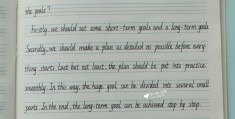 the goals?
Firstly, we should set some short-term goals and a long-term goals
Secondly, we should make a plan as detailed as possible before every-
thing starts. Last but not least, the plan should be put into practice
smoothly. In this way, the huge goal can be divided into several small
parts. In the end, the long-term goal can be achieved step by step.